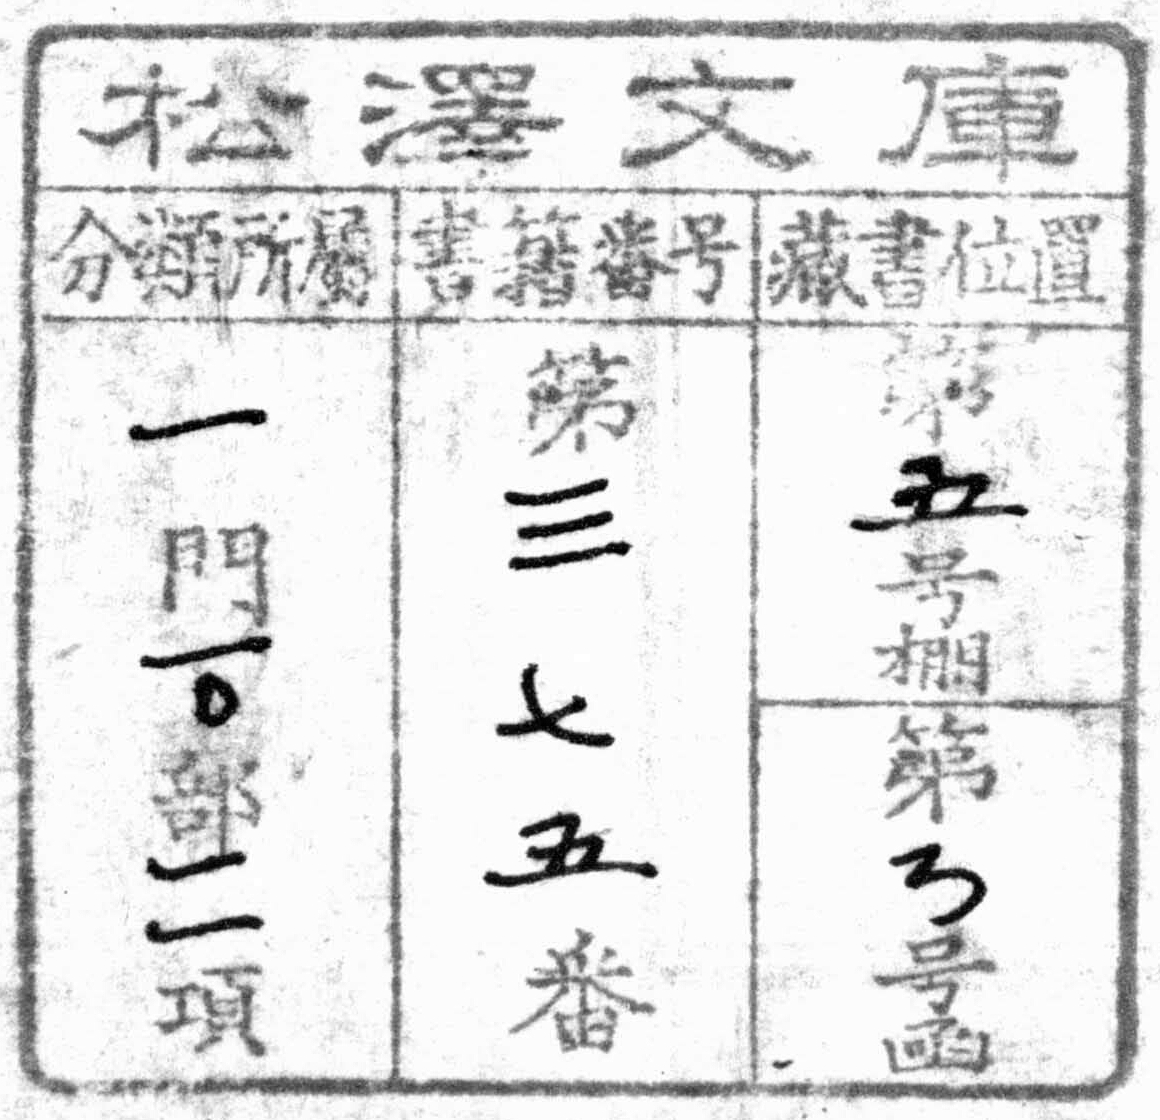 松澤文庫
分類所屬
書籍番号
藏書位置
一門一〇部二項
第三七五番
第五号棚
第ろ号函